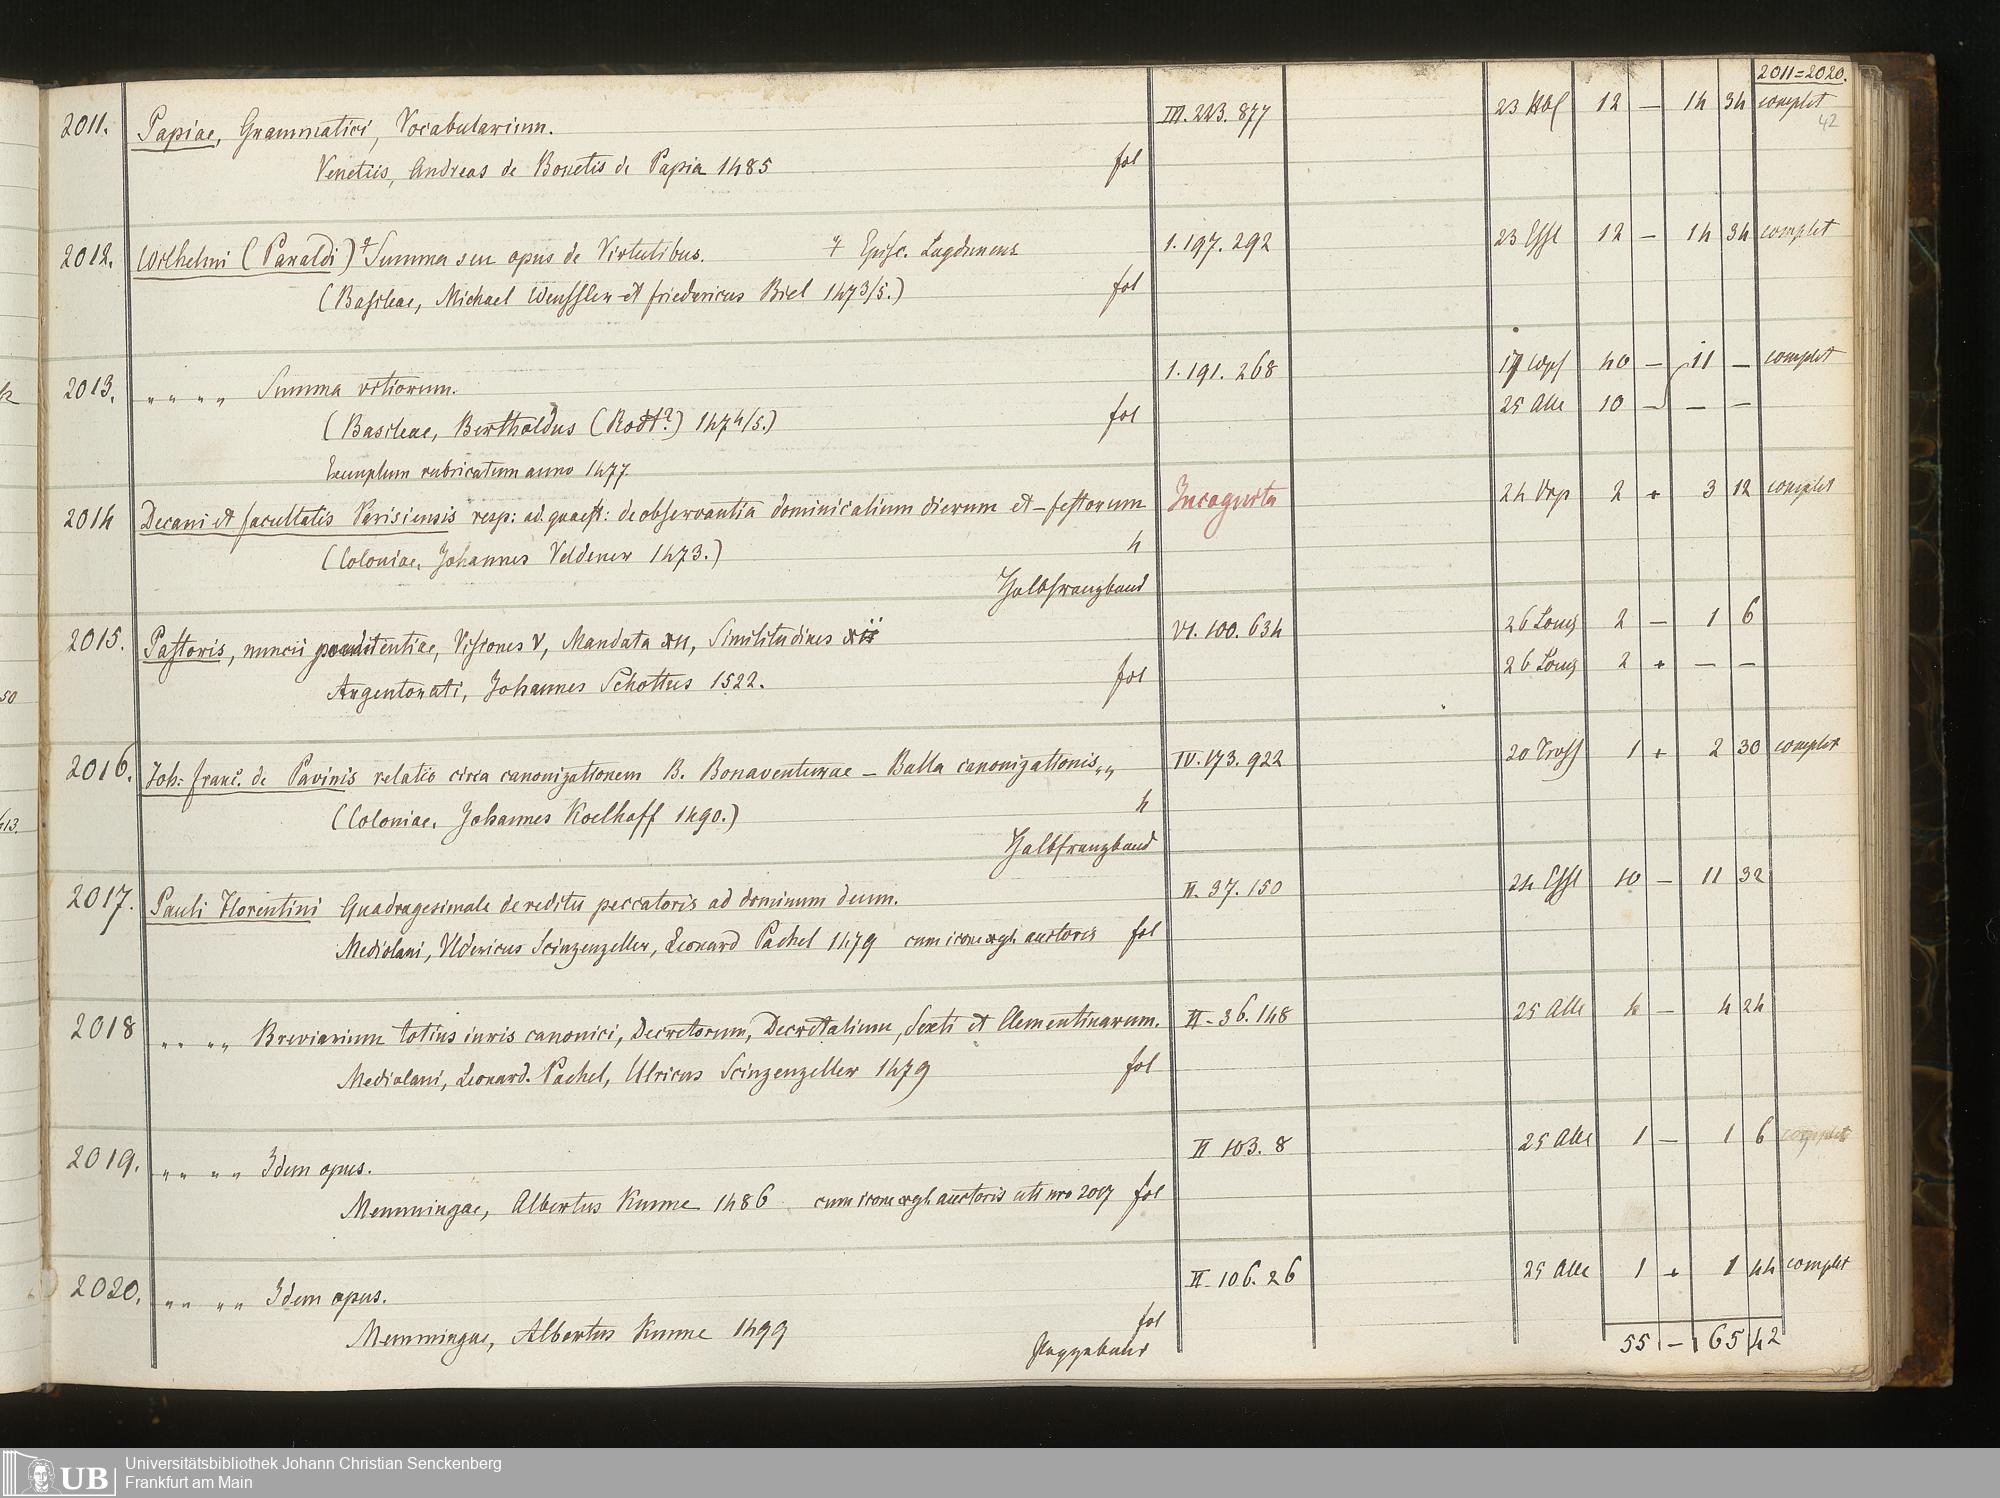 2011=2020.
2011. Papiae, Grammatici, Vocabularium. III. 223. 877 23 12 — 14 34 complet
42
Venetiis, Andreas de Bonetis de Papia 1485 fol
2012. Wilhelmi (Paraldi) Summa seu opus de Virtutibus. Episc. Lugdunens 1. 197. 292 23 Essl 12 — 14 34 complet
(Basileae, Michael Wenssler et Friedericus Biel 1473/5.) fol
2013. „ „ „ „ Summa vitiorum. 1. 191. 268 40 — 11 — complet
(Basileae, Bertholdus (Rodt?) 1474/5.) fol 25 Alle 10 — — —
Exemplum rubricatum anno 1477.
2014 Decani et facultatis Parisiensis resp: ad quaest: de observantia dominicalium dierum et festorum Incognita 24 2 + 3 12 complet
(Coloniae, Johannes Veldener 1473.) 4
Halbfranzband
2015. Pastoris, nuncii poenitentiae, Visiones V, Mandata XII, Similitudines VI. 100. 634 26 Long 2 — 1 6
Argentorati, Johannes Schottus 1522. fol 26 Long 2 + — —
2016. Joh: Franc. de Pavinis relatio circa canonizationem B. Bonaventurae — Bulla canonizationis „ „ IV. 173. 922 20 Tross 1 + 2 30 complet
(Coloniae, Johannes Koelhoff 1490.) 4
Halbfranzband
2017. Pauli Florentini Quadragesimale de reditu peccatoris ad dominum deum. II. 37. 150 24 Essl 10 — 11 32
Mediolani, Uldericus Scinzenzeller, Leonard Pachel 1479 cum icone xyl. auctoris fol
2018 „ „ „ „ Breviarium totius iuris canonici, Decretorum, Decretalium, Sexti et Clementinarum. II. 36. 148 25 Alle 4 — 4 24
Mediolani, Leonard. Pachel, Ulricus Scinzenzeller 1479 fol
2019. „ „ „ „ Idem opus. II 103. 8 25 Alle 1 — 1 6 complet
Memmingae, Albertus Kunne 1486 cum icone xyl. auctoris uti nro 2017 fol
2020. „ „ „ „ Idem opus. II. 106. 26 25 Alle 1 + 1 44 complet
Memmingae, Albertus Kunne 1499 fol
Pappband
55 — 65 42
UB
Universitätsbibliothek Johann Christian Senckenberg
Frankfurt am Main